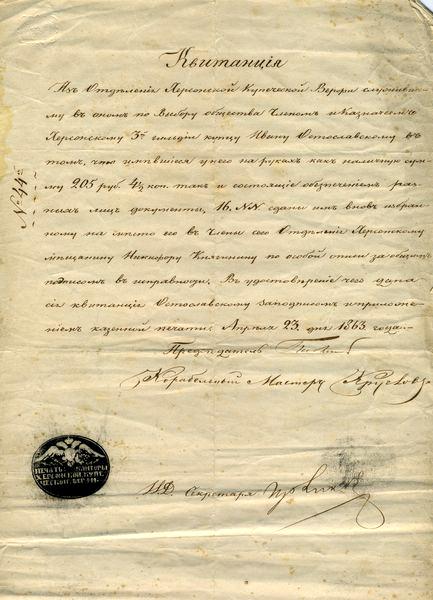 Квитанція
Изъ Отдѣленія Херсонской Купеческой Верфи служивше-
му въ ономъ по Выбору общества Членомъ и Казначеемъ
Херсонскому 3й гильдіи купцу Ивану Фетославскому въ
томъ, что имѣвшіеся у него на рукахъ какъ наличную сум-
му 205 руб. 4½ коп. такъ и состоящіе обезпеченіемъ раз-
ныхъ лицъ документы, 16. NN сданы имъ вновь избран-
ному на мѣсто его въ Члены сего Отдѣленія Херсонскому
мѣщанину Никифору по особой описи за общимъ
подписомъ въ исправности. Въ удостовѣреніе чего дана
сія квитанція Фетославскому за подписомъ и приложе-
ніемъ казенной печати: Апрѣля 23. дня 1863 года.
№ 44й
Предсѣдатель
Корабельный Мастеръ
ПЕЧАТЬ КОНТОРЫ
ХЕРСОНСКОЙ КУПЕ
ЧЕСКОЙ ВЕРФИ
И.Д. Секретаря